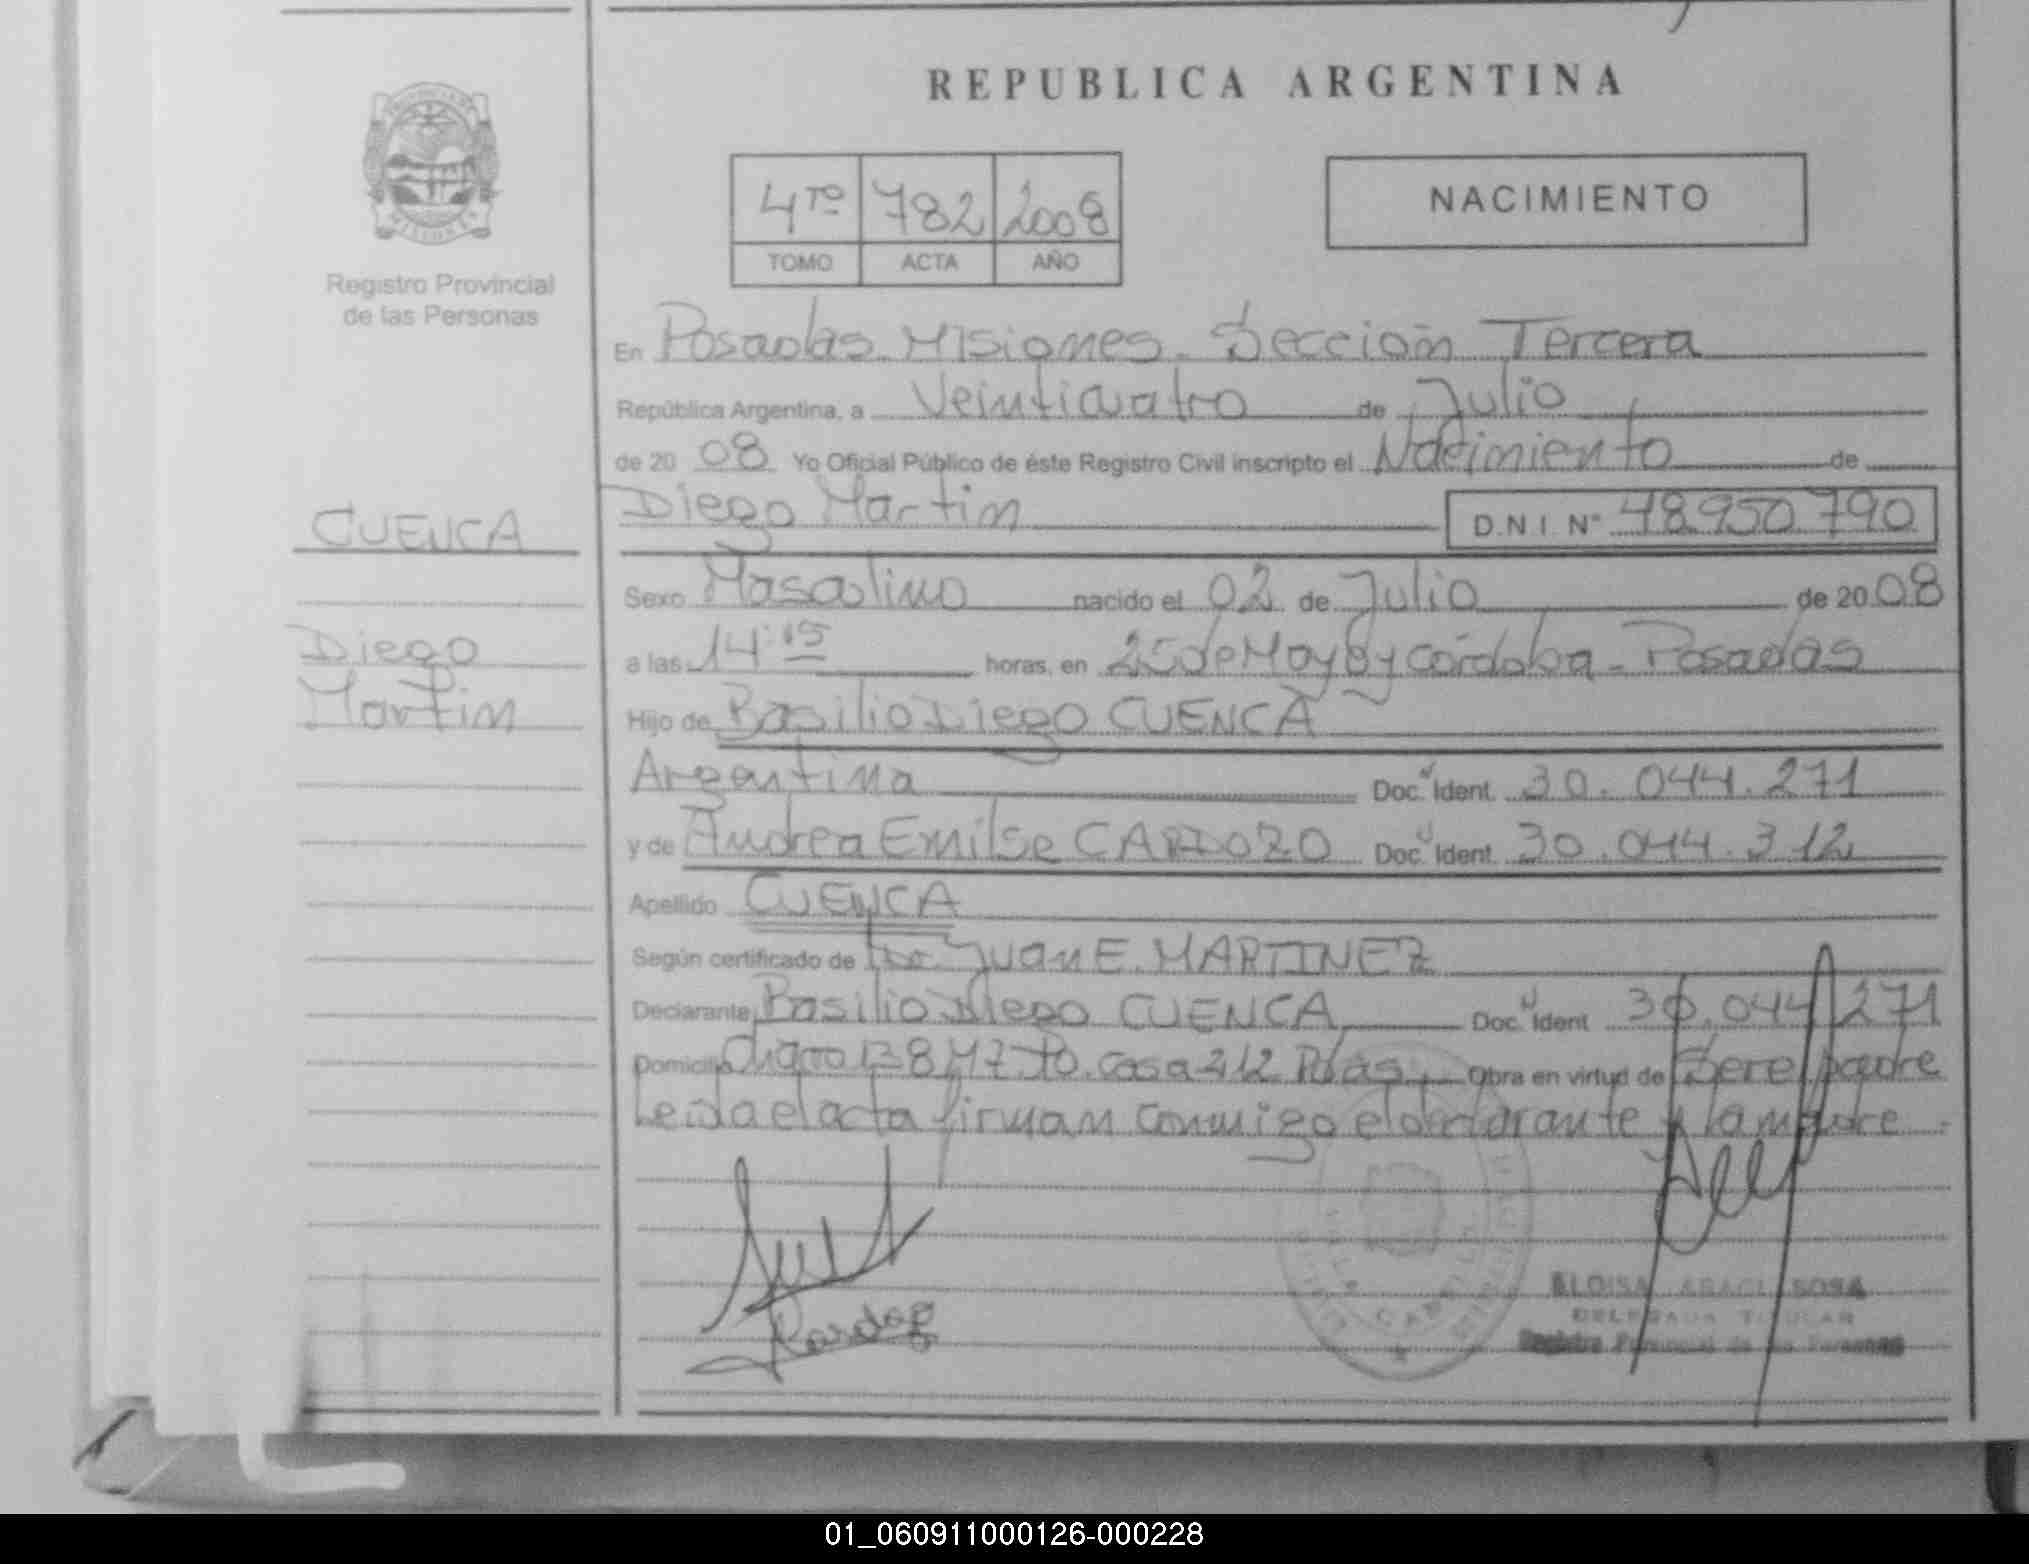 REPUBLICA ARGENTINA
4to 782 2008
TOMO ACTA AÑO
NACIMIENTO
Registro Provincial
de las Personas
CUENCA
Diego
Martin
En Posadas Misiones - Sección Tercera
República Argentina, a Veinticuatro de Julio
de 20 08 Yo Oficial Público de éste Registro Civil inscripto el Nacimiento de
Diego Martin D.N.I. Nº 48.950.790
Sexo Masculino nacido el 02 de Julio de 20 08
a las 14:15 horas, en 25 de Mayo y Córdoba - Posadas
Hijo de Basilio Diego CUENCA
Argentina Doc. Ident. 30.044.271
y de Andrea Emilse CARDOZO Doc. Ident. 30.044.312
Apellido CUENCA
Según certificado de Dr. Juan E. MARTINEZ
Declarante Basilio Diego CUENCA Doc. Ident 30.044.271
Domicilio casa 212 Pdas, Obra en virtud de Ser el padre
Leida el acta firman conmigo el declarante y la madre.
Cardozo
ELOISA SOSA
DELEGADA TITULAR
Registro Provincial de las Personas
01_060911000126-000228